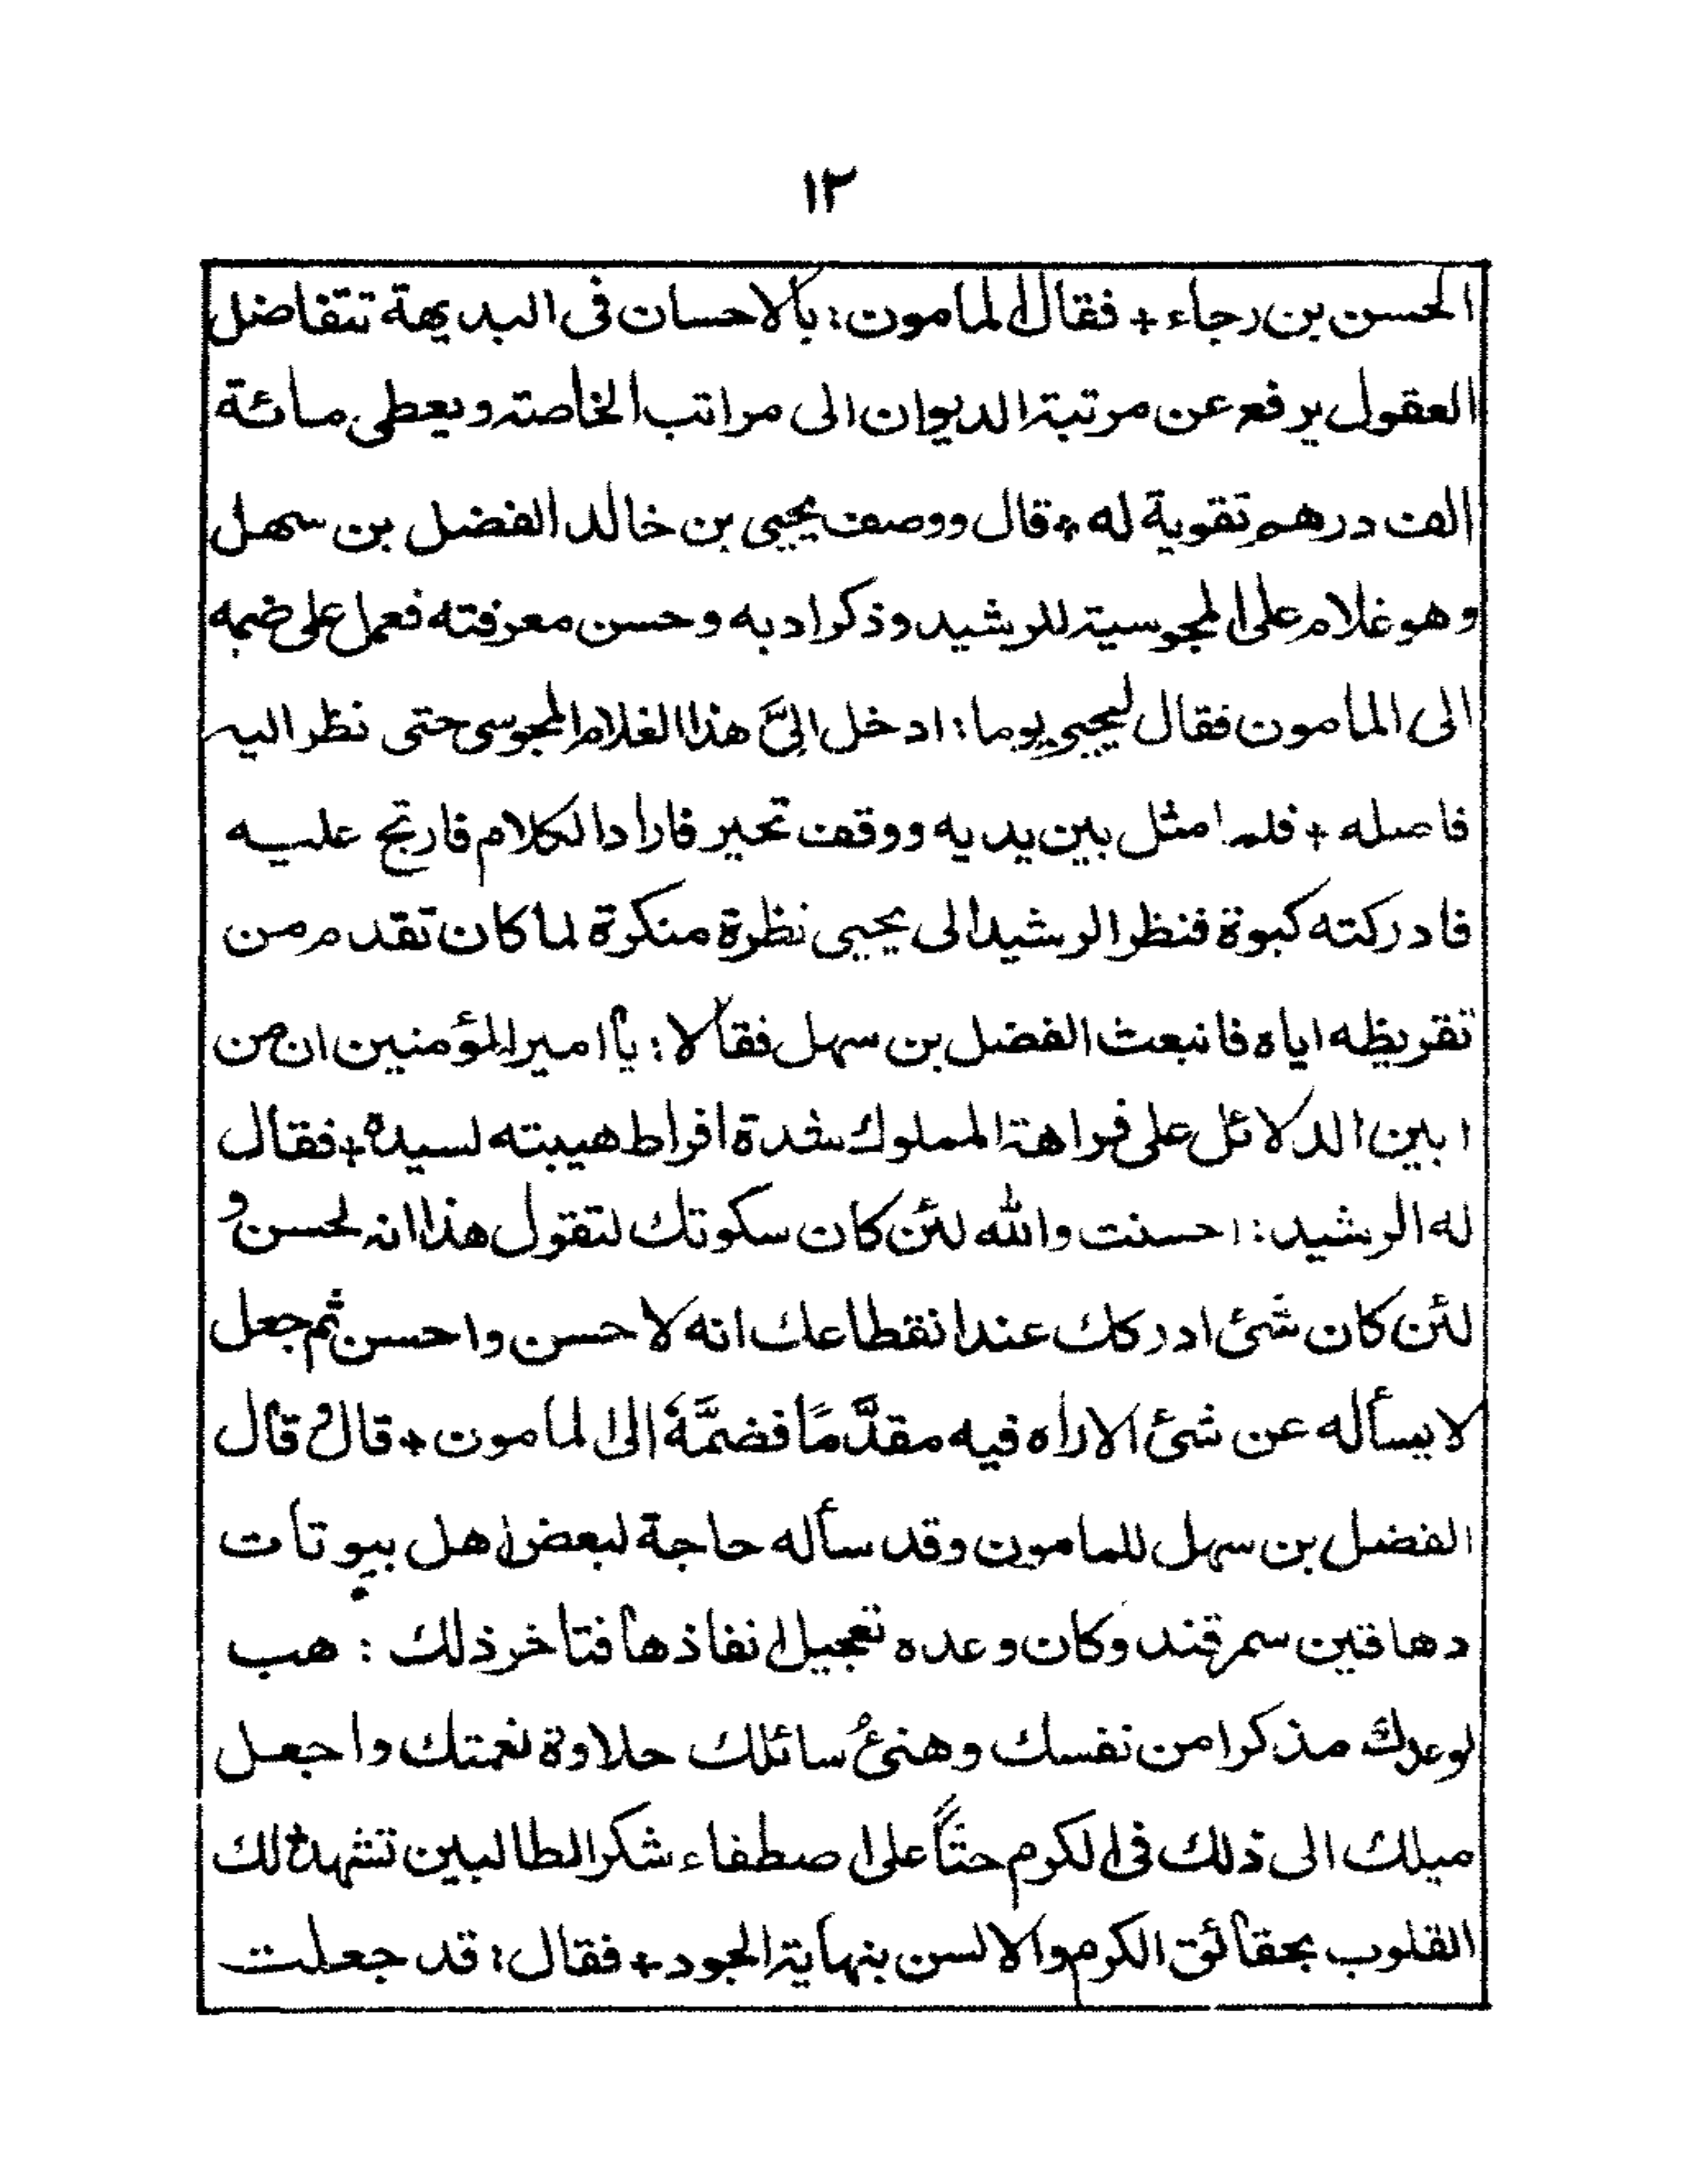 ١٣
الحسن بن رجاء + فقال المامون: بالاحسان فى البديهة تتفاضل
العقول يرفع عن مرتبة الديوان الى مراتب الخاصة ويعطى مائة
الف درهم تقوية له + قال ووصف يحيى بن خالد الفضل بن سهل
وهو غلام على المجوسية للرشيد وذكر ادبه وحسن معرفته فعمل على ضمه
الى المامون فقال ليحيى يوما: ادخل الىَّ هذا الغلام المجوسى حتى نظر اليه
فاصله + فلما مثل بين يديه ووقف تحير فاراد الكلام فارتج عليه
فادركته كبوة فنظر الرشيد الى يحيى نظرة منكرة لما كان تقدم من
تقريظه اياه فانبعث الفضل بن سهل فقالا: يا امير المؤمنين ان من
ابين الدلائل على فراهة المملوك شدة افراط هيبته لسيده + فقال
له الرشيد: احسنت والله لئن كان سكوتك لتقول هذا انه لحسن و
لئن كان شئ ادركك عند انقطاعك انه لاحسن واحسن ثم جعل
لا يسأله عن شئ الا راه فيه مقدَّمًا فضمَّهٗ الى المامون + قال و قال
الفضل بن سهل للمامون وقد سأله حاجة لبعض اهل بيوتات
دهاقين سمرقند وكان وعده تعجيل انفاذها فتاخر ذلك : هب
لوعدك مذكرا من نفسك وهنئُ سائلك حلاوة نعمتك واجعل
ميلك الى ذلك فى الكرم حثًّا على اصطفاء شكر الطالبين تشهد لك
القلوب بحقائق الكرم والالسن بنهاية الجود + فقال: قد جعلت